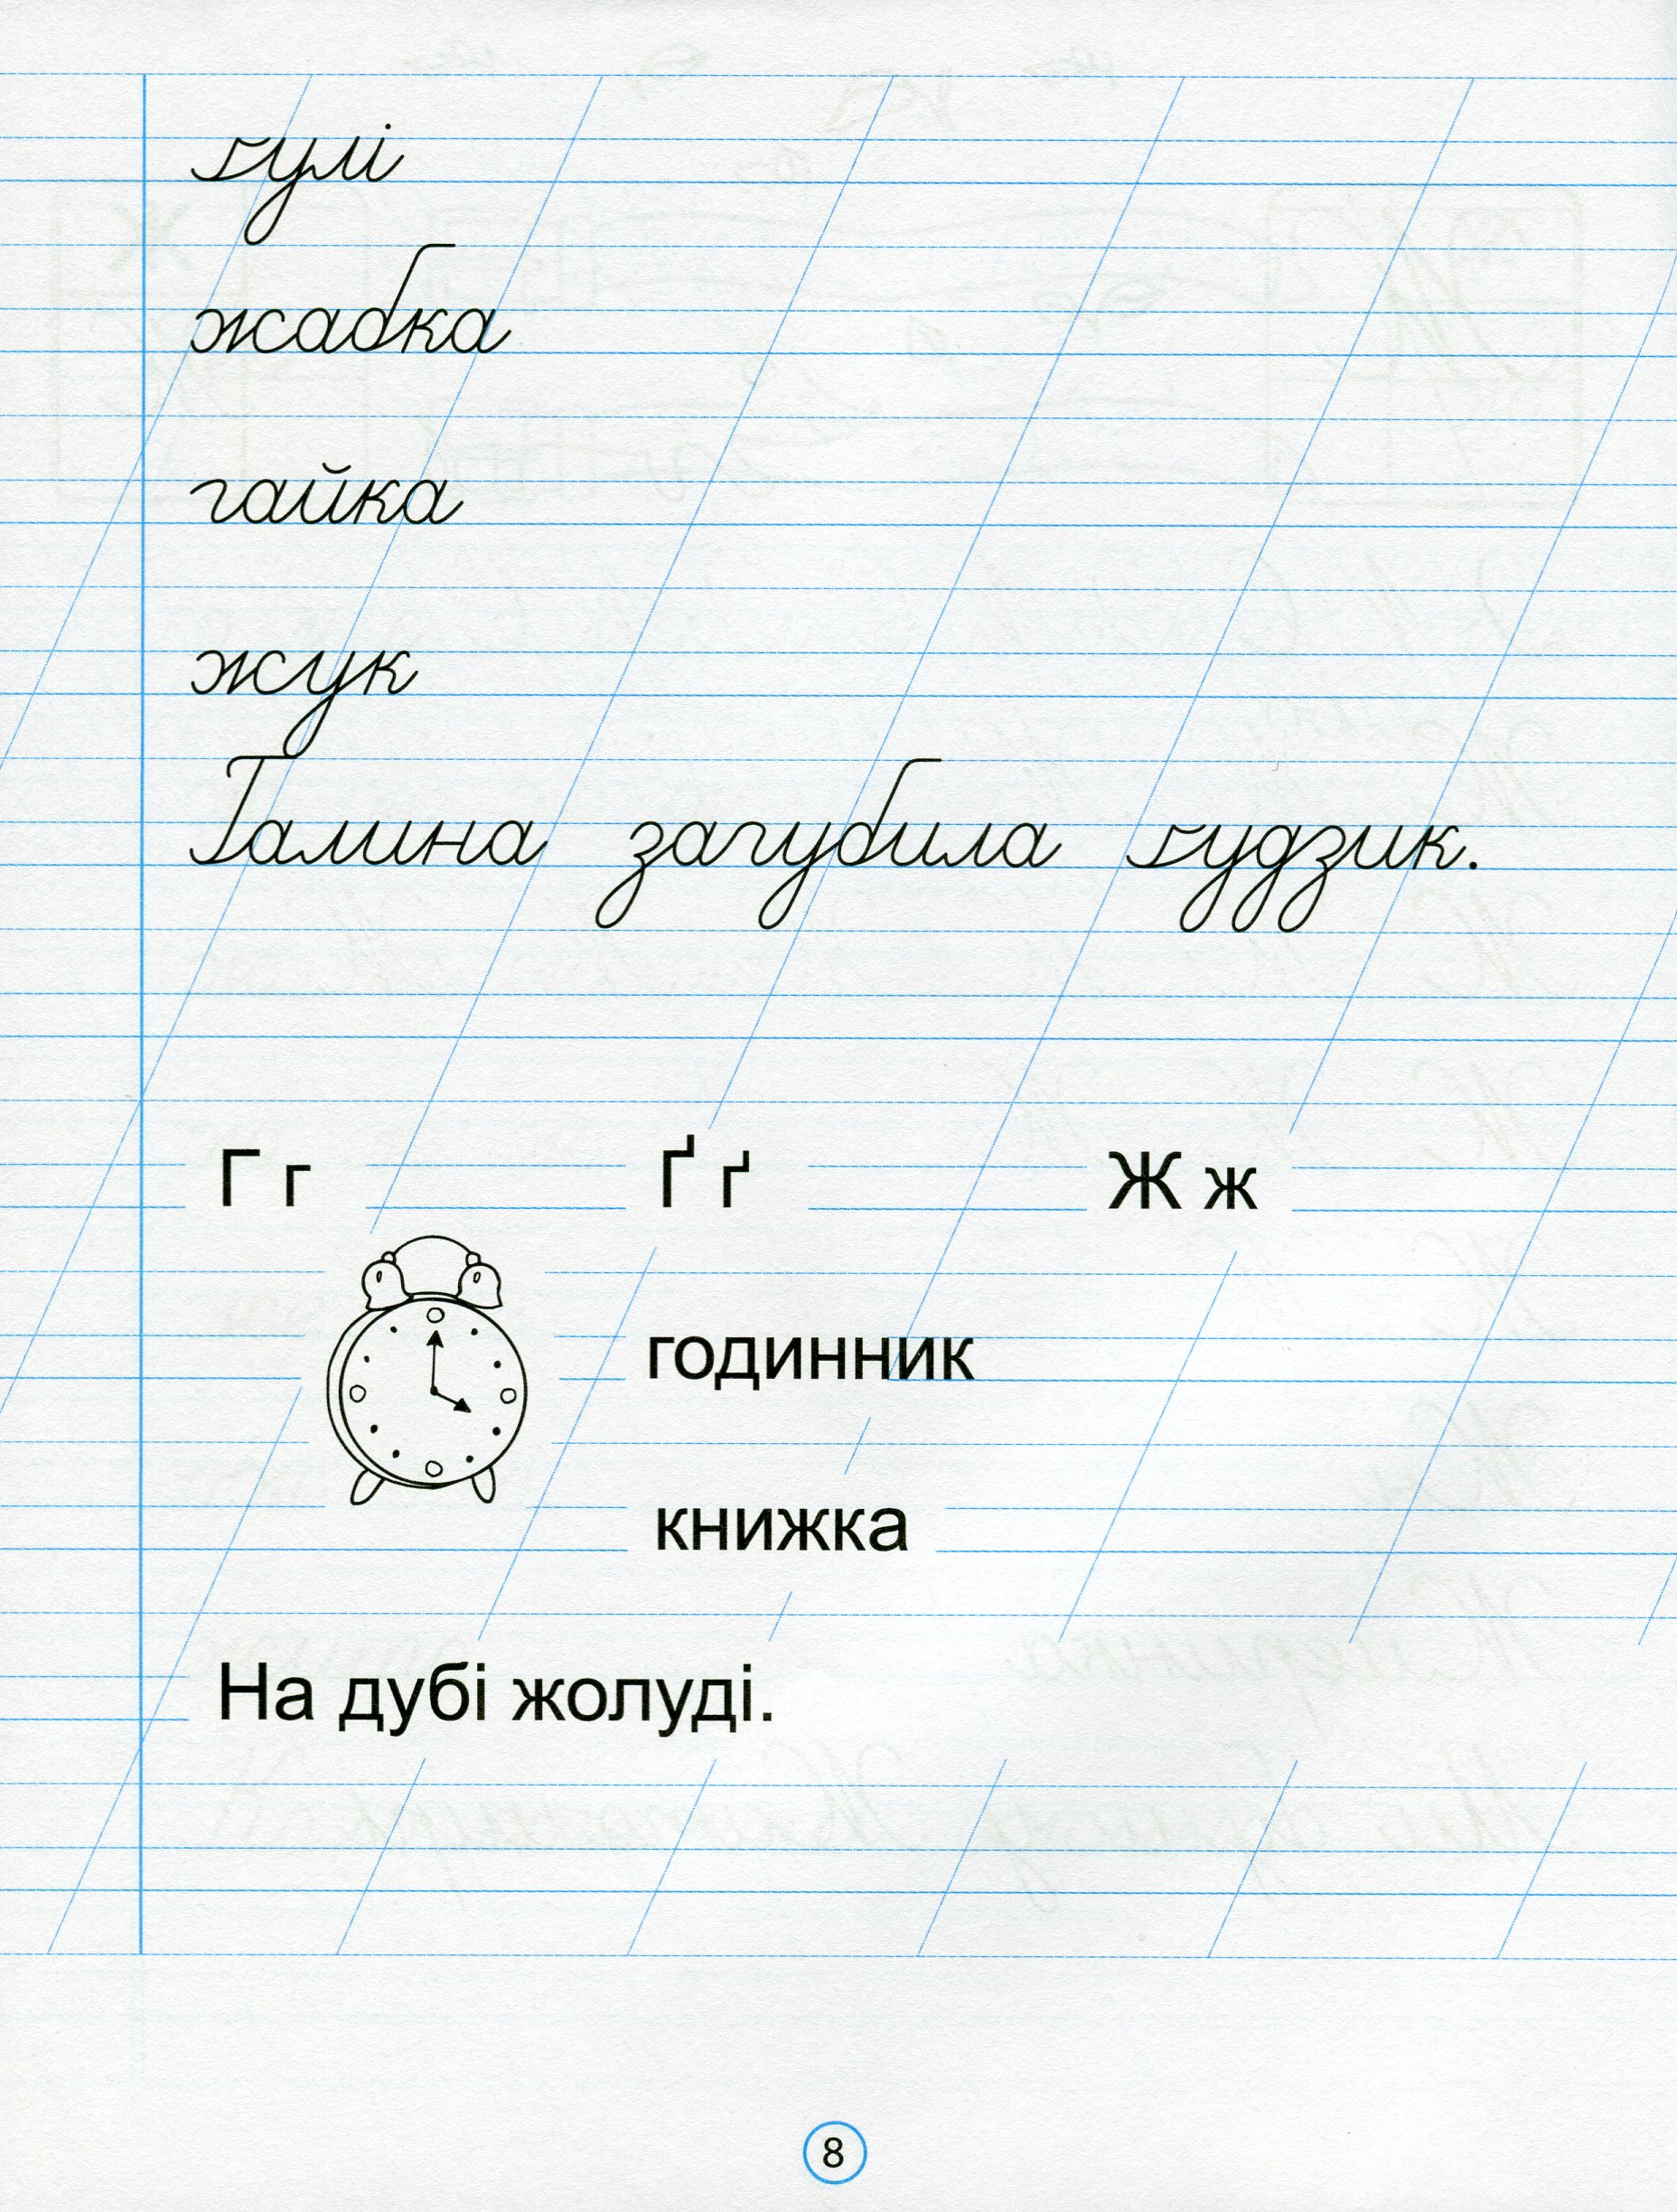 ґулі
жабка
гайка
жук
Галина загубила ґудзик.
Г г Ґ ґ Ж ж
годинник
книжка
На дубі жолуді.
8